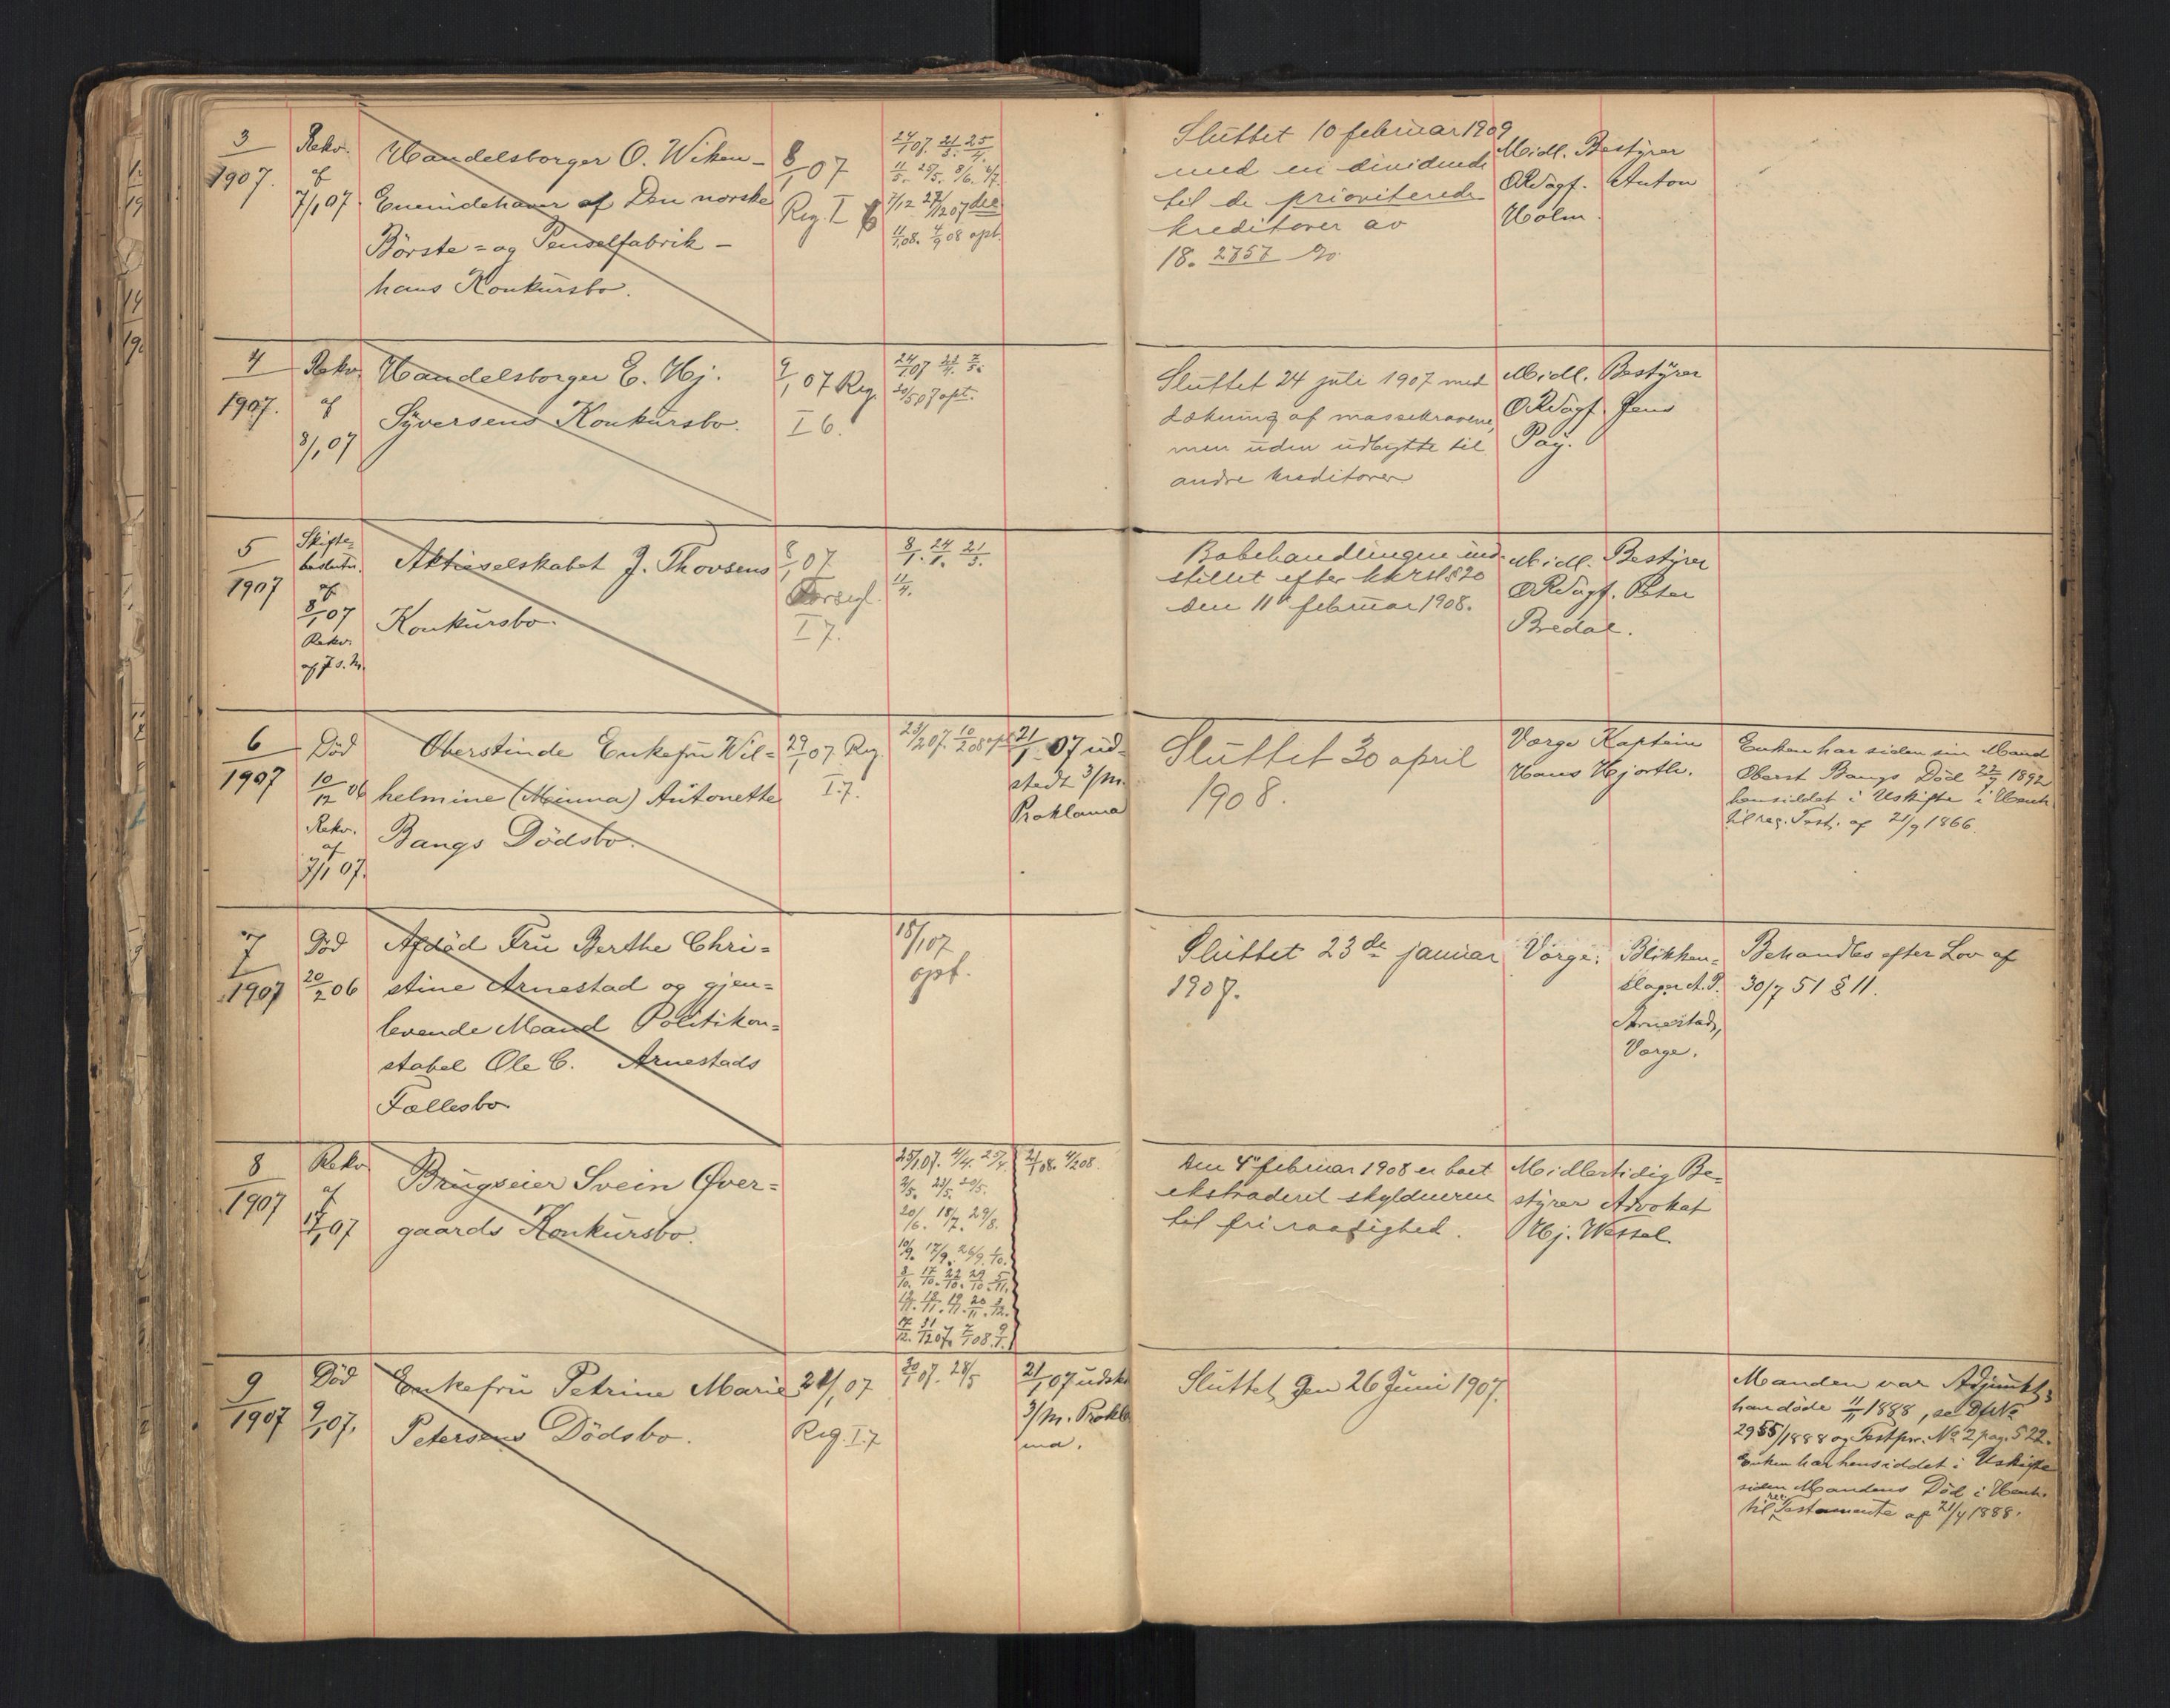 3
1907.
Rekv.
af
7/1 07.
Handelsborger O. Wiken –
Eneindehaver af Den norske
Börste= og Penselfabrik –
hans Konkursbo.
8/1 07
Reg. I 6
24/1 07. 21/3. 25/4.
11/5. 25/5. 8/6. 6/7.
7/12 27/12 07
11/1 08. 4/9 08 opt.
Sluttet 10 februar 1909
med en dividende
til de prioriterede
kreditorer av
18. 2757 %
Midl. Bestyrer
ORSagf. Anton
Holm.
4
1907.
Rekv.
af
8/1 07
Handelsborger E. Hj.
Syversens Konkursbo.
9/1 07 Reg.
I 6.
24/1 07
20/5 07 opt.
Sluttet 24 juli 1907 med
dækning af massekravene,
men uden udbytte til
andre kreditorer.
Midl. Bestyrer
ORSagf. Jens
Pay.
5
1907
Skifte-
beslutn.
af
8/1 07
Rekv.
af s. D.
Aktieselskabet J. Thovsens
Konkursbo.
8/1 07
Forsegl.
I 7.
8/1. 24/1. 21/3.
11/4.
Bobehandlingen ind-
stillet efter kkrsl § 20
den 11 februar 1908.
Midl. Bestyrer
ORSagf. Peter
Bredal.
6
1907
Död
10/12 06
Rekv.
af
7/1 07.
Oberstinde Enkefru Wil=
helmine (Minna) Antonette
Bangs Dödsbo.
29/1 07. Reg.
I 7.
23/12 07. 10/2 08 opt
21/1 07 ud-
stedt 3/m.
Proklama
Sluttet 30 april
1908.
Værge Kaptein
Hans Hjorth.
Enken har siden sin Mand
Oberst Bangs Död 22/7 1892
hensiddet i Uskifte i Henh.
til reg. Test. af 21/9 1866.
7
1907
Död
20/2 06
Afdöd Fru Berthe Chri=
stine Arnestad og gjen=
levende Mand Politikon=
stabel Ole C. Arnestads
Fællesbo
18/1 07
opt.
Sluttet 23de januar
1907.
Værge: Blikken=
slager A. P.
Arnestad,
Værge.
Behandles efter Lov af
30/7 51 § 11.
8
1907
Rekv
af
17/1 07
Brugseier Svein Øver=
gaards Konkursbo.
25/1 07. 4/4. 25/4.
2/5. 23/5. 29/5.
20/6. 18/7. 29/8.
10/9. 17/9. 26/9. 1/10.
3/10. 17/10. 22/10. 29/10. 5/11.
12/11. 19/11. 20/11. 3/12.
17/12. 31/12 07. 7/1 08. 9/1.
21/1 08. 4/2 08.
Den 4' februar 1908 er boet
ekstraderet skyldneren
til fri raadighed.
Midlertidig Be=
styrer Advokat
Hj. Wessel.
9
1907
Död
9/1 07.
Enkefru Petrine Marie
Petersens Dödsbo.
21/1 07
Reg. I 7
30/1 07. 28/5
21/1 07 udst.
3/m. Prokla
ma.
Sluttet den 26 Juni 1907.
Manden var Adjunkt;
han döde 11/11 1888, se Df No
2955/1888 og Testpr. No 2 pag. 522.
Enken har hensiddet i Uskifte
siden Mandens Död i Henh.
til reg. Testamente af 21/4 1888.